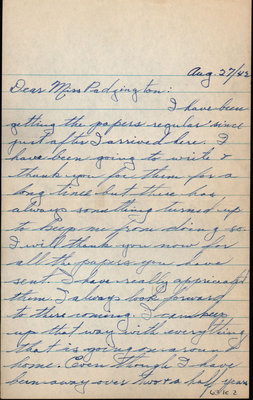 Aug. 27/42
Dear Miss Padgington:
I have been
getting the papers regular since
just after I arrived here. I
have been going to write &
thank you for them for a
long time but there has
always something turned up
to keep me from doing so.
I will thank you now for
all the papers you have
sent. I have really appreciated
them. I always look forward
to there coming. I can keep
up that way with everything
that is going on around
home. Even though I have
been away over two & a half years